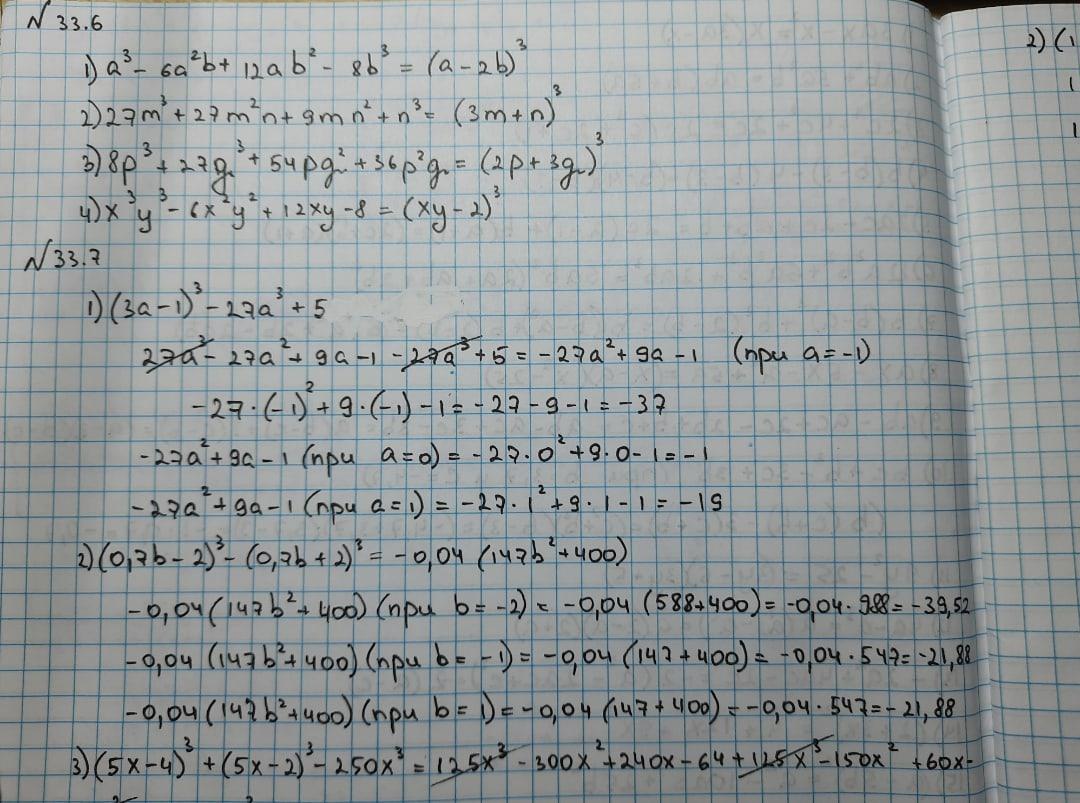 № 33.6
1) a³ - 6a²b + 12ab² - 8b³ = (a - 2b)³
2) 27m³ + 27m²n + 9mn² + n³ = (3m + n)³
3) 8p³ + 27q³ + 54pq² + 36p²q = (2p + 3q)³
4) x³y³ - 6x²y² + 12xy - 8 = (xy - 2)³
№ 33.7
1) (3a - 1)³ - 27a³ + 5
27a³ - 27a² + 9a - 1 - 27a³ + 5 = -27a² + 9a - 1 (при a = -1)
-27 · (-1)² + 9 · (-1) - 1 = -27 - 9 - 1 = -37
-27a² + 9a - 1 (при a = 0) = -27 · 0² + 9 · 0 - 1 = -1
-27a² + 9a - 1 (при a = 1) = -27 · 1² + 9 · 1 - 1 = -19
2) (0,7b - 2)³ - (0,7b + 2)³ = -0,04 (147b² + 400)
-0,04 (147b² + 400) (при b = -2) = -0,04 (588 + 400) = -0,04 · 988 = -39,52
-0,04 (147b² + 400) (при b = -1) = -0,04 (147 + 400) = -0,04 · 547 = -21,88
-0,04 (147b² + 400) (при b = 1) = -0,04 (147 + 400) = -0,04 · 547 = -21,88
3) (5x - 4)³ + (5x - 2)³ - 250x³ = 125x³ - 300x² + 240x - 64 + 125x³ - 150x² + 60x -
2) (1
1
1